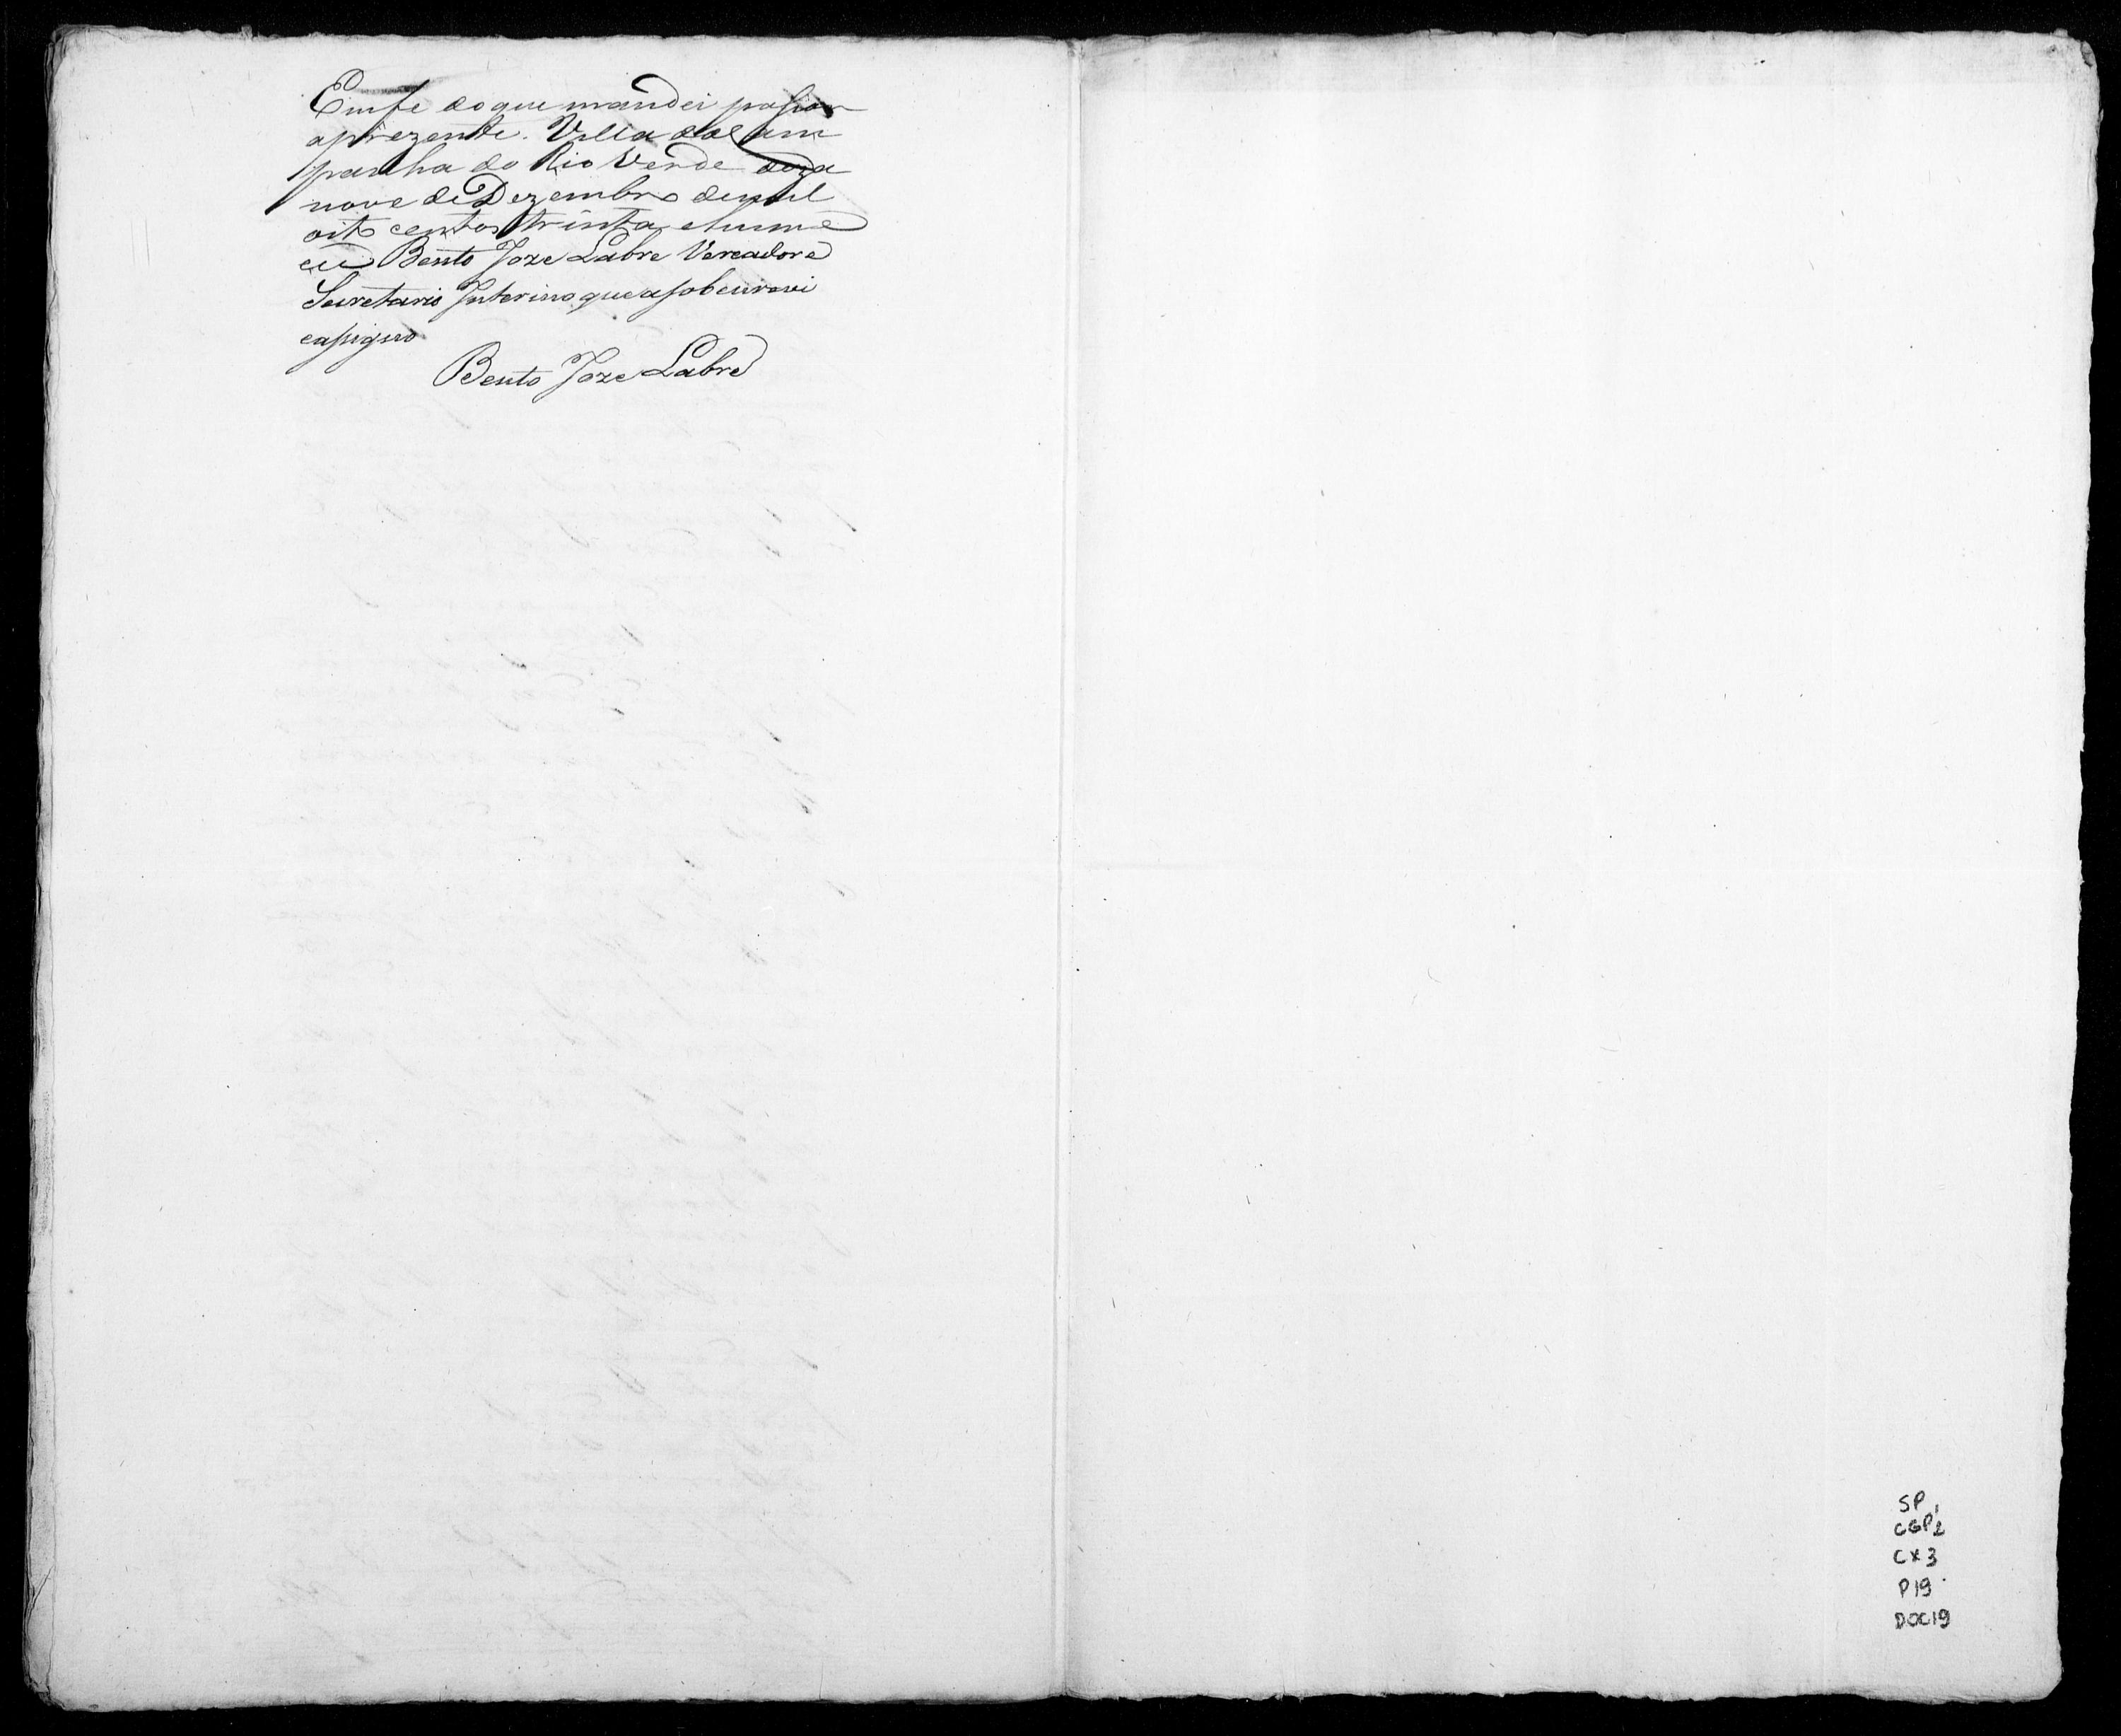 Em fe do que mandei passar
a prezente. Villa da Cam
panha do Rio Verde deza
nove de Dezembro de mil
oito centos trinta e hum e
eu Bento Joze Labre Vereador e
Secretario Interino que a sobscrevi
e assigno
Bento Joze Labre
SP
CGP 1/2
CX 3
P 19
DOC 19